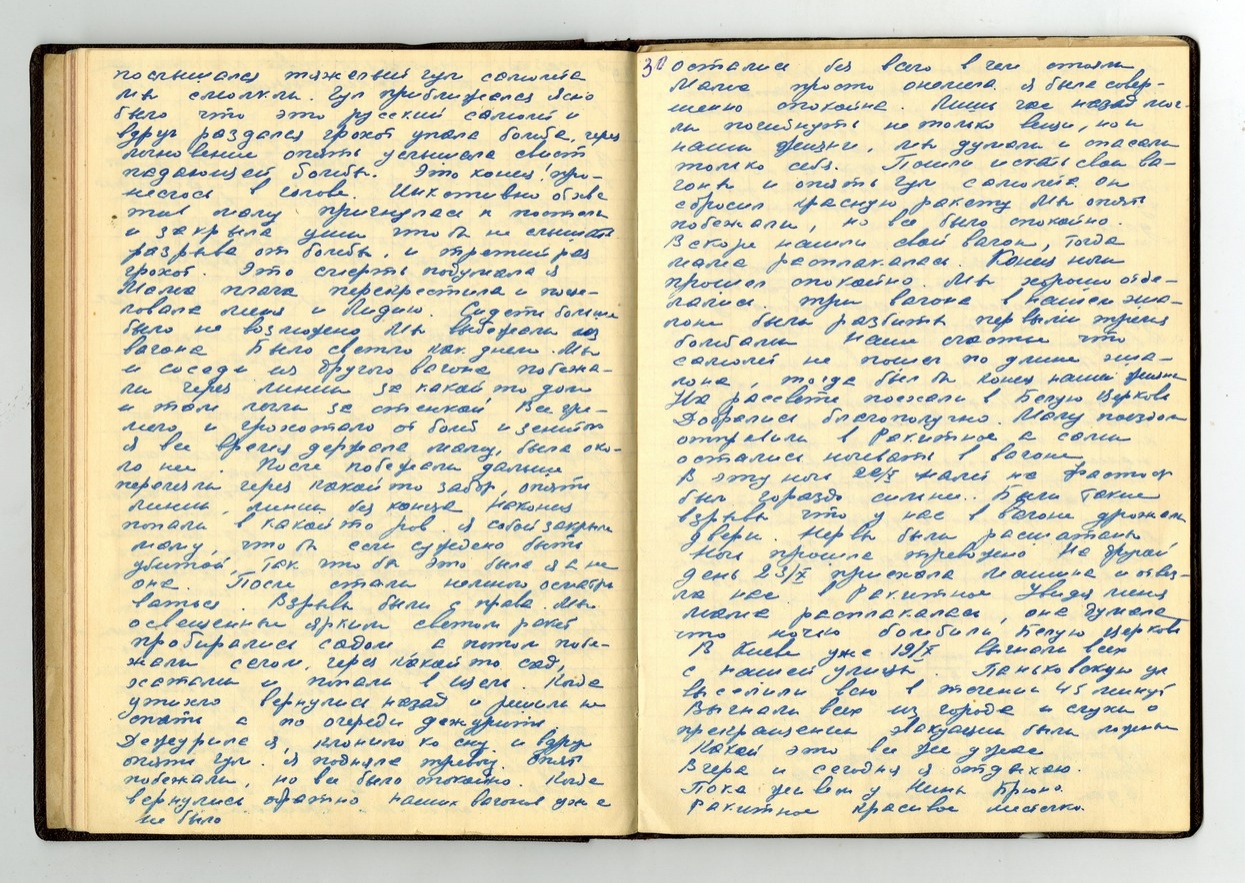 послышался тяжелый гул самолета
мы смолкли. Гул приближался Ясно
было что это русский самолет и
вдруг раздался грохот упала бомба, через
мгновение опять услышала свист
падающей бомбы. Это конец про-
неслось в голове. Инктивно обхва
тив маму пригнулась к постели
и закрыла уши чтоб не слышать
разрыва от бомбы, и третий раз
грохот. Это смерть подумала я
Мама плача перекрестила и поце-
ловала меня и Лидию. Сидеть больше
было не возможно Мы выбежали из
вагона Было светло как днем. Мы
и соседи из другого вагона побежа-
ли через линии за какой то дом
и там легли за стенкой Все гре-
мело и грохотало от бомб и зениток
я все время держала маму, была око-
ло нее. После побежали дальше
перелезли через какой то забор, опять
линии, линии без конца Наконец
попали в какой то ров. Я собой закрыла
маму, чтоб если суждено быть
убитой Так что бы это была я а не
она. После стали немного осматри
ваться. Взрывы были с права. Мы
освещенные ярким светом ракет
пробирались садом а потом побе-
жали селом, через какой то сад,
и попали в щель. Когда
утихло вернулись назад и решили не
спать а по очереди дежурить.
Дежурила я, клонило ко сну и вдруг
опять гул. Я подняла тревогу. Опять
побежали, но все было спокойно. Когда
вернулись обратно наших вагонов уже
не было
30 остались без всего в чем стояли
Мама просто онемела. Я была совер-
шенно спокойна. Лишь час назад мог-
ли погибнуть не только вещи, но и
наши жизни, мы думали и спасали
только себя. Пошли искать свои ва-
гоны и опять гул самолета. он
сбросил красную ракету Мы опять
побежали, но все было спокойно.
Вскоре нашли свой вагон, тогда
мама расплакалась. Конец ночи
прошел спокойно. Мы хорошо отде-
лались. три вагона в нашем эша-
лоне были разбиты первыми тремя
бомбами Наше счастье что
самолет не пошел по длине эша-
лона, тогда был бы конец нашей жизни
На рассвете поехали в Белую Церковь
Добрались благополучно. Маму поездом
отправили в Ракитное а сами
остались ночевать в вагоне
В эту ночь налет на Фастов
был гораздо сильнее. Были такие
взрывы что у нас в вагоне дрожали
двери. Нервы были расшатаны
Ночь прошла тревожно На другой
день 23/X приехала машина и отвез-
ла нас в Ракитное Увидя меня
мама расплакалась, она думала
что ночью бомбили Белую Церковь
В Киеве уже 19/X выгнали всех
с нашей улицы. Паньковскую ул
выселили всю в течении 45 минут
Выгнали всех из города и слухи о
прекращении эвакуации были ложны
Какой это все же ужас
Вчера и сегодня я отдыхаю.
Пока живем у Нины Брюно.
Ракитное красивое местечко.